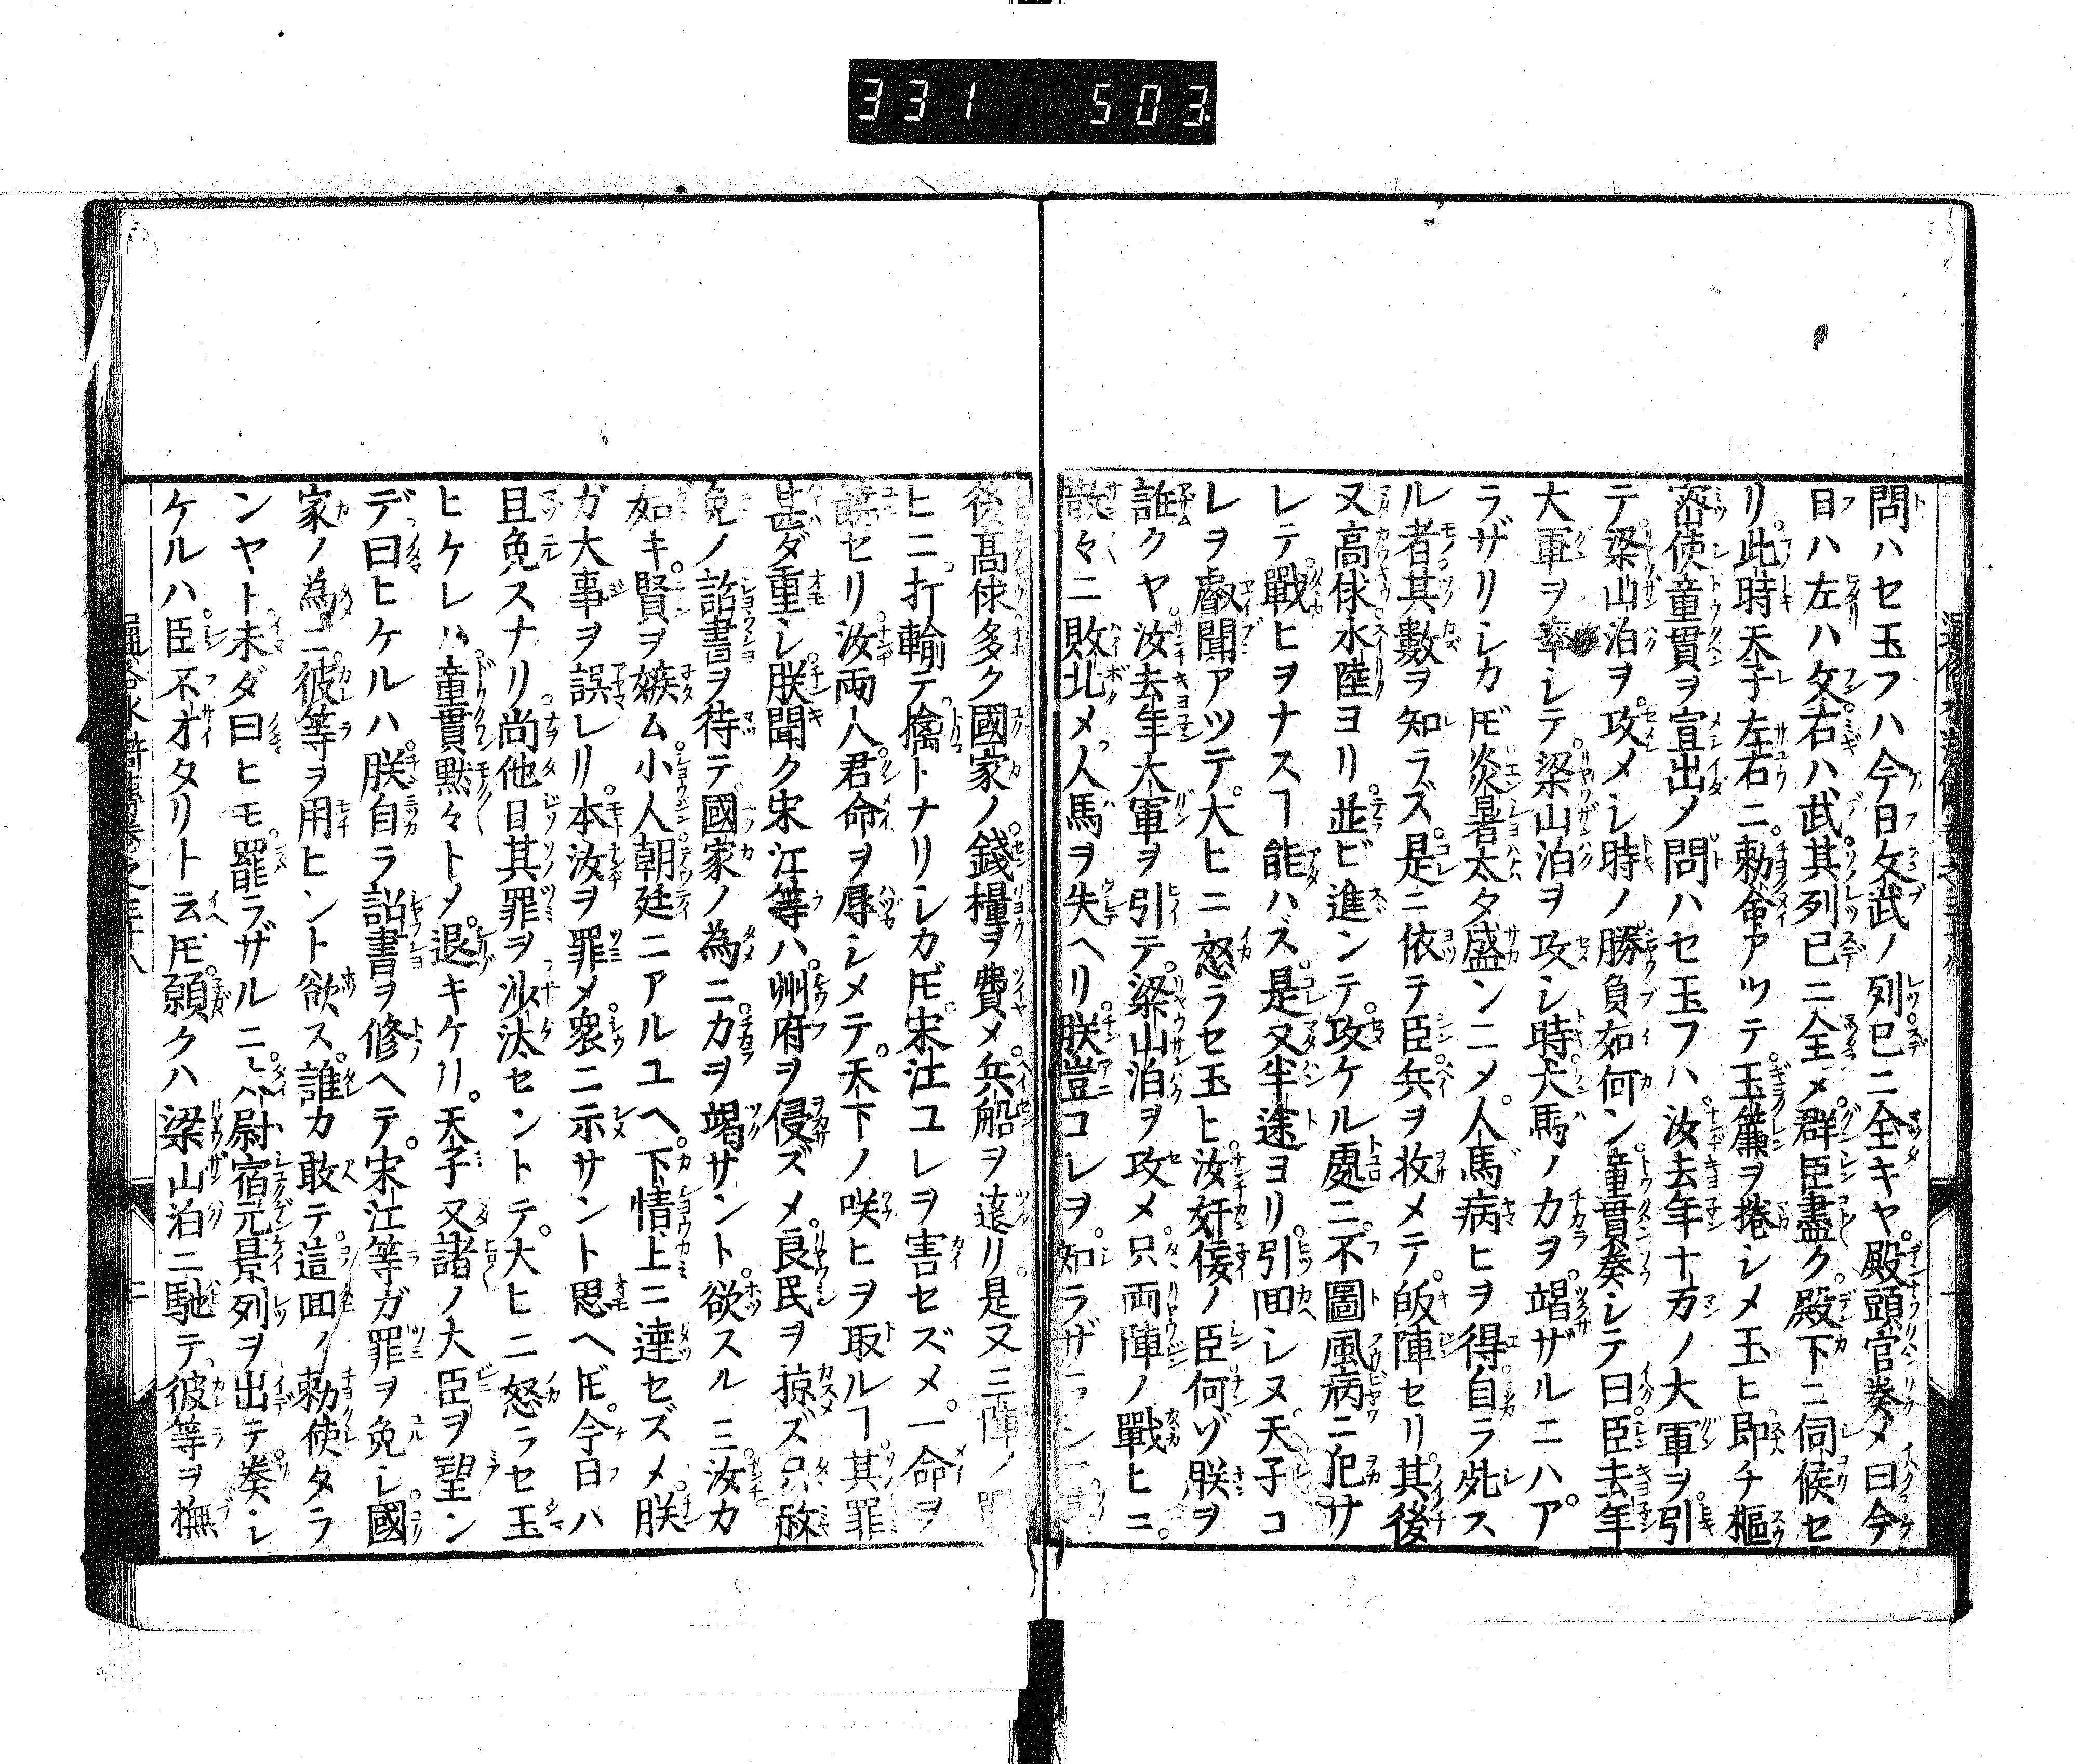 331 503
問ハセ玉フハ今日文武ノ列已ニ全キヤ殿頭官奏メ曰今
日ハ左ハ文右ハ武其列已ニ全メ群臣盡ク殿下ニ伺候セ
リ此時天子左右ニ勅命アツテ玉簾ヲ捲シメ玉ヒ即チ樞
密使童貫ヲ宣出メ問ハセ玉フハ汝去年十万ノ大軍ヲ引
テ梁山泊ヲ攻メシ時ノ勝負如何ン童貫奏シテ曰臣去年
大軍ヲ率シテ梁山泊ヲ攻シ時犬馬ノカヲ竭ザルニハア
ラザリシカ𪜈炎暑太タ盛ンニメ人馬病ヒヲ得自ラ死ス
ル者其數ヲ知ラズ是ニ依テ臣兵ヲ收メテ皈陣セリ其後
又高俅水陸ヨリ並ビ進ンテ攻ケル處ニ不圖風病ニ犯サ
レテ戰ヒヲナスヿ能ハズ是又半途ヨリ引囬シヌ天子コ
レヲ叡聞アツテ大ヒニ怒ラセ玉ヒ汝奸侫ノ臣何ゾ朕ヲ
誑クヤ汝去年大軍ヲ引テ梁山泊ヲ攻メ只両陣ノ戰ヒニ
散々ニ敗北メ人馬ヲ失ヘリ朕豈コレヲ知ラザランヤ其
後高俅多ク國家ノ錢糧ヲ費メ兵船ヲ造リ是又三陣ノ戰
ヒニ打輸テ擒トナリシカ𪜈宋江コレヲ害セズメ一命ヲ
饒セリ汝両人君命ヲ辱シメテ天下ノ咲ヒヲ取ルヿ其罪
甚ダ重シ朕聞ク宋江等ハ州府ヲ侵ズメ良民ヲ掠ズ只赦
免ノ詔書ヲ待テ國家ノ為ニカヲ竭サント欲スル三汝カ
如キ賢ヲ嫉ム小人朝廷ニアルユヘ下情上ニ達セズメ朕
ガ大事ヲ誤レリ本汝ヲ罪メ衆ニ示サント思ヘ𪜈今日ハ
且免スナリ尚他日其罪ヲ沙汰セントテ大ヒニ怒ラセ玉
ヒケレハ童貫黙々トメ退キケリ天子又諸ノ大臣ヲ望ン
デ曰ヒケルハ朕自ラ詔書ヲ修ヘテ宋江等ガ罪ヲ免シ國
家ノ為ニ彼等ヲ用ヒント欲ス誰カ敢テ這囬ノ勅使タラ
ンヤト未ダ曰ヒモ罷ラザルニ大尉宿元景列ヲ出テ奏シ
ケルハ臣不オタリト云𪜈願クハ梁山泊ニ馳テ彼等ヲ撫